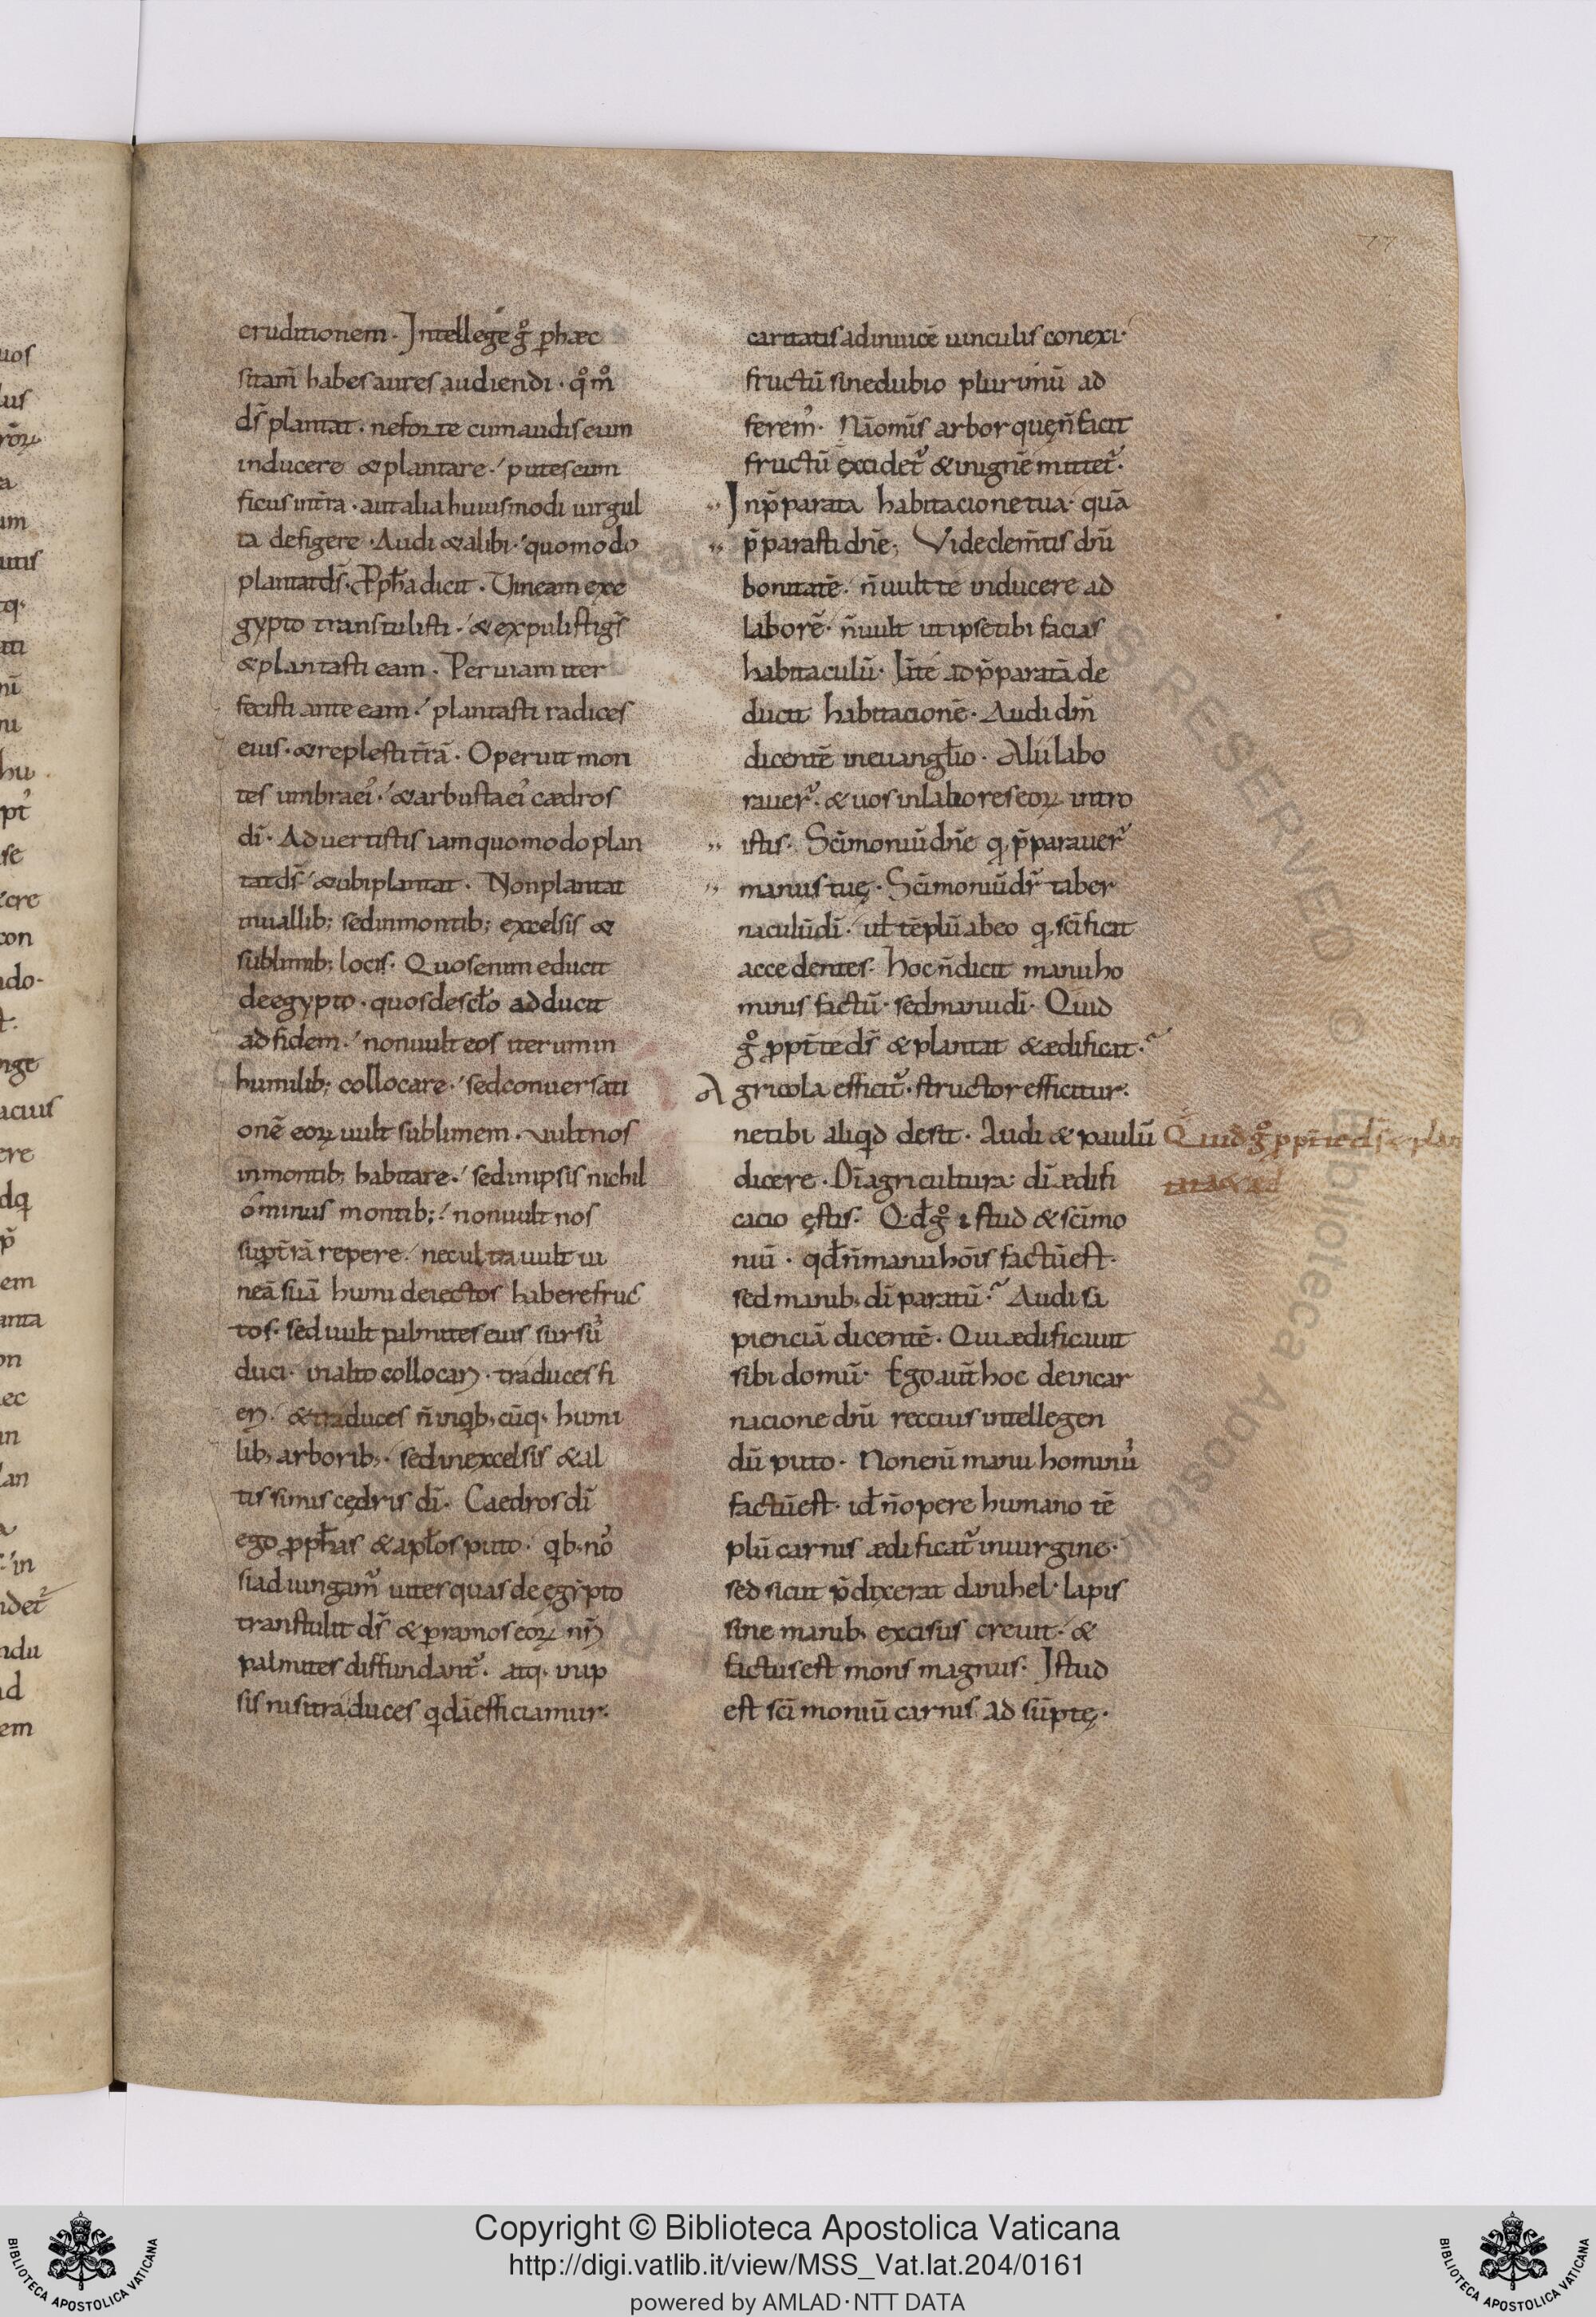 77
eruditionem · Intellege gͦ ꝑ hæc
sitam̄ habes aures audiendi · qͦmͦ
ds̄ plantat · ne forte cum audis eum
inducere & plantare · putes eum
ficus int̄ra · aut alia huiusmodi uirgul
ta defigere · Audi & alibi · quomodo
plantat ds̄ · Ꝓph̄a dicit · Uineam exe
gypto transtulisti · & expulisti gēs
& plantasti eam · Per uiam iter
fecisti ante eam · plantasti radices
eius · & replesti t̄rā · Operuit mon
tes umbra ei᾽ · & arbusta ei᾽ cædros
dī · Aduertistis iam quomodo plan
tat ds̄ · & ubi plantat · Non plantat
in uallib; sed in montib; excelsis &
sublimib; locis · Quos enim educit
de egypto · quos de scl̄o adducit
ad fidem · non uult eos iterum in
humilib; collocare · sed conuersati
onē eoꝝ uult sublimem · uult nos
in montib; habitare · sed in ipsis nichil
ominus montib; · non uult nos
sup t̄rā repere · nec ultra uult ui
neā suā humi deiectos habere fruc
tos · sed uult palmites eius sursū
duci · in alto collocari · traduces fi
eri · & traduces n̄ in qb; cūq; humi
lib; arborib; · sed in excelsis & al
tissimis cędris dī · Caedros dī
ego ꝓph̄as & apl̄os puto · qb; nos᾽
si adiungam᾽ uites quas de egypto
transtulit ds̄ & ꝑ ramos eoꝝ nr̄i
palmites diffundant᾽ · atq; in ip
sis nisi traduces qdā efficiamur ·
caritatis adinuicē uinculis conexi ·
fructū sine dubio plurimū ad
ferem᾽ · Nā om̄is arbor quę n̄ facit
fructū excidet᾽ & in ignē mittet᾽ ·
In p̄parata habitacione tua · quā
p̄parasti dn̄e; Vide clem̄tis dn̄i
bonitatē · n̄ uult te inducere ad
laborē · n̄ uult ut ipse tibi facias
habitaculū · Iā te ad p̄paratā de
ducit habitacionē · Audi dn̄m
dicentē in euangl̄io · Alii labo
rauer᾽ · & uos in labores eoꝝ intro
istis · Sc̄imoniū dn̄e q p̄parauer᾽
manus tuę · Sc̄imoniū dr̄ taber
naculū dī · ul̄ tēplū ab eo q sc̄ificat
accedentes · hoc n̄ dicit manu ho
minis factū · sed manu dī · Quid
gͦ ꝓpt̄ te ds̄ & plantat & ædificat ·
Agricola efficit᾽ · structor efficitur ·
ne tibi aliqd desit · Audi & paulū
dicere · Dī agricultura · dī ædifi
cacio ęstis · Qd̄ gͦ istud & sc̄imo
niū · qd̄ n̄ manu hōis factū est ·
sed manib; dī paratū · Audi sa
pienciā dicentē · Qui ædificauit
sibi domū · Ego aut̄ hoc de incar
nacione dn̄i reccius intellegen
dū puto · Non enī manu hominū
factū est · id̄ n̄ opere humano tē
plū carnis ædificat᾽ in uirgine ·
sed sicut p̄dixerat danihel · lapis
sine manib; excisus creuit · &
factus est mons magnus · Istud
est sc̄imoniū carnis adsūptę ·
Quid gͦ ꝓpt̄ te ds̄ & plan
Copyright © Biblioteca Apostolica Vaticana
http://digi.vatlib.it/view/MSS_Vat.lat.204/0161
powered by AMLAD·NTT DATA
BIBLIOTECA APOSTOLICA VATICANA
BIBLIOTECA APOSTOLICA VATICANA